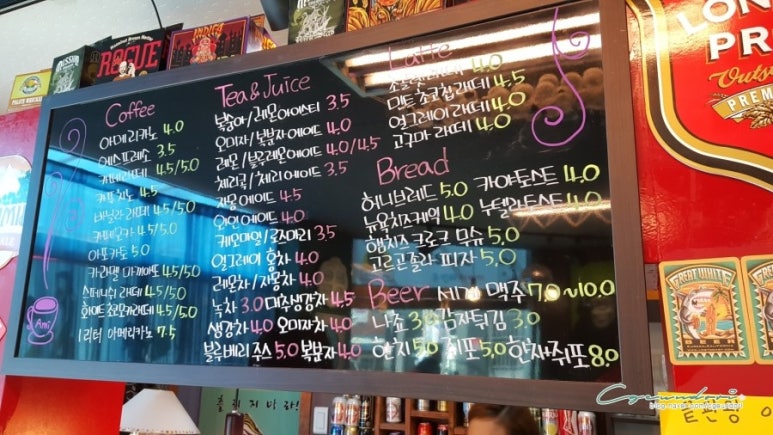 Coffee
아메리카노 4.0
에스프레소 3.5
카페라떼 4.5/5.0
카푸치노 4.5
바닐라 라떼 4.5/5.0
카페모카 4.5/5.0
아포카토 5.0
카라멜 마끼아또 4.5/5.0
스페니쉬 라떼 4.5/5.0
화이트 초코카라떼 4.5/5.0
1리터 아메리카노 7.5
Ami
Tea & Juice
복숭아/레몬아이스티 3.5
오미자/복분자에이드 4.0
레몬/블루레몬에이드 4.0/4.5
체리콕/체리에이드 3.5
자몽에이드 4.5
와인에이드 4.0
캐모마일/로즈마리 3.5
얼그레이 홍차 4.0
레몬차/자몽차 4.0
녹차 3.0 대추생강차 4.5
생강차 4.0 오미자차 4.0
블루베리 쥬스 5.0 복분자 4.0
Latte
초콜릿 라떼 4.0
민트 초코칩 라떼 4.5
얼그레이 라떼 4.0
고구마 라떼 4.0
Bread
허니브레드 5.0 카야토스트 4.0
뉴욕치즈케잌 4.0 누텔라토스트 4.0
햄치즈 크로크 무슈 5.0
고르곤졸라 피자 5.0
Beer 세계 맥주 7.0~10.0
나쵸 3.0 감자튀김 3.0
한치 5.0 쥐포 5.0 한치+쥐포 8.0
ROGUE
INDICA
LON
PR
Outs
PREM
GREAT WHITE
BEER
흘리지 마라!